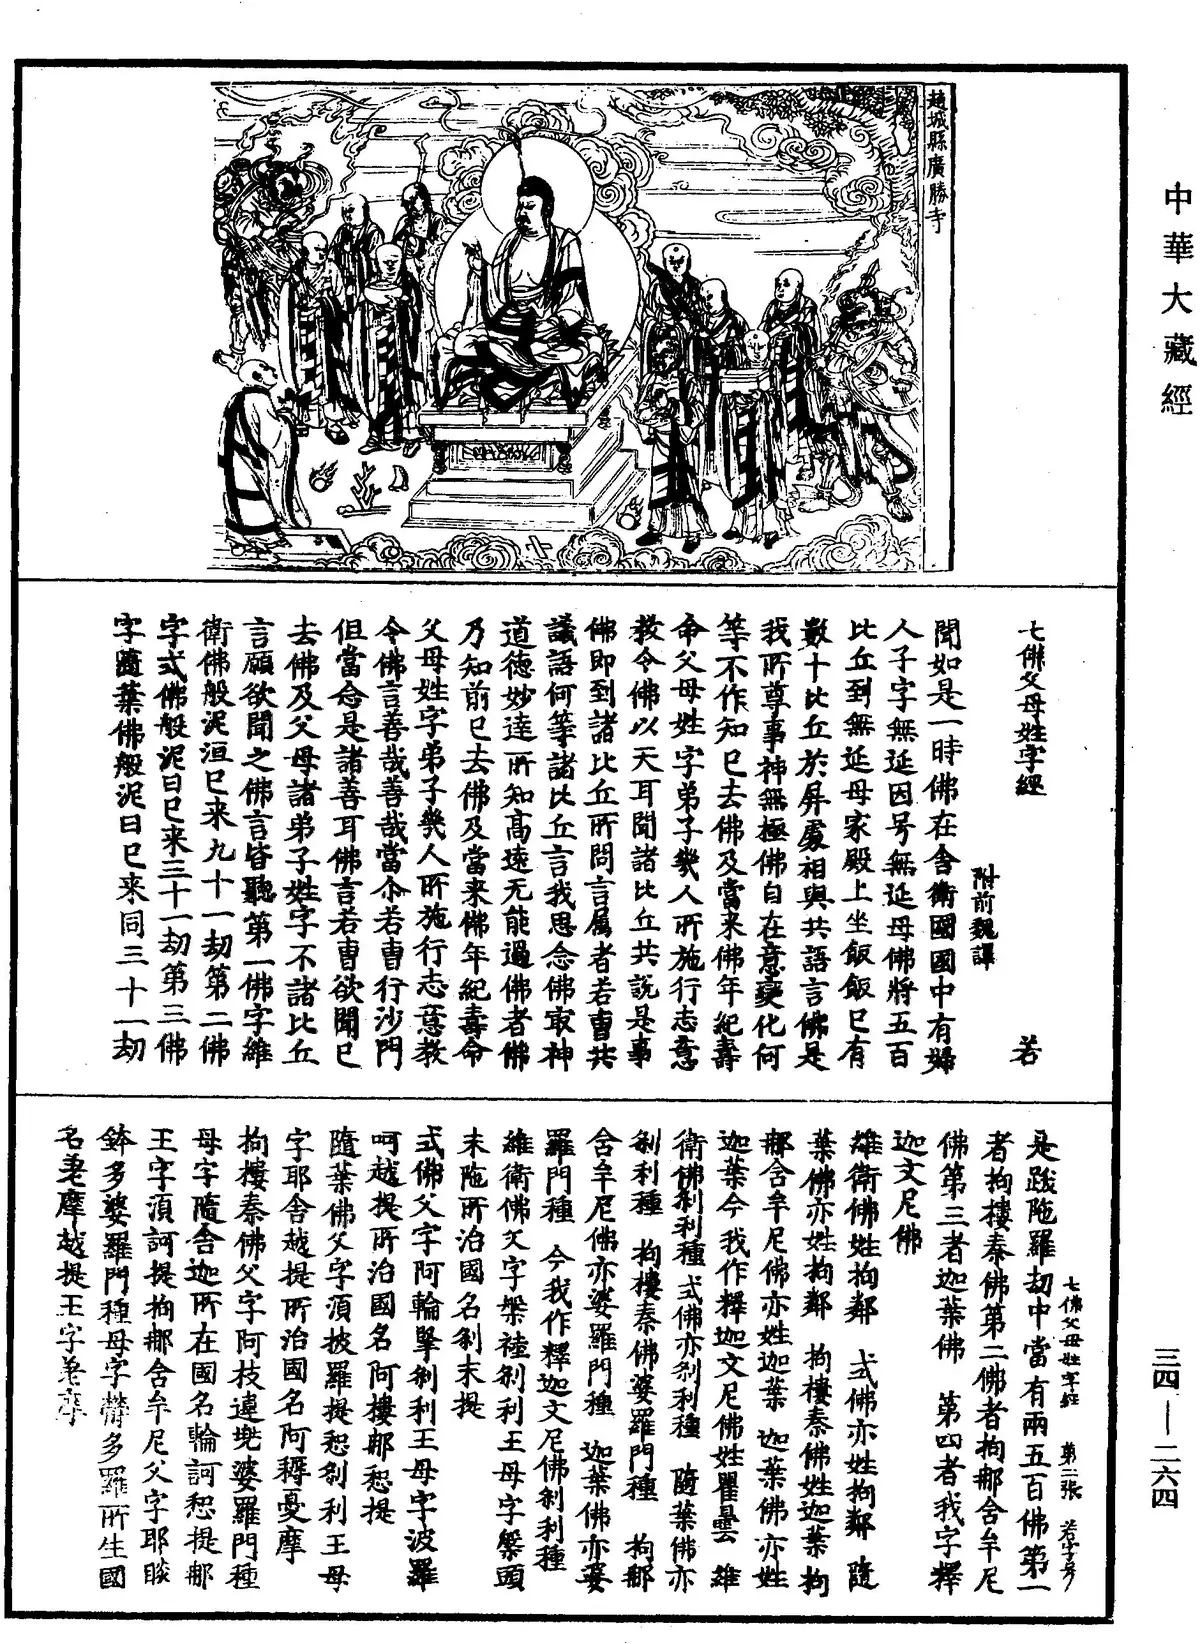 中華大藏經
趙城縣廣勝寺
七佛父母姓字經
若
附前魏譯
聞如是一時佛在舍衛國國中有婦
人子字無延因号無延母佛將五百
比丘到無延母家殿上坐飯飯已有
數十比丘於屏處相與共語言佛是
我所尊事神無極佛自在意變化何
等不作知已去佛及當来佛年紀壽
命父母姓字弟子幾人所施行志意
教令佛以天耳聞諸比丘共說是事
佛即到諸比丘所問言属者若曹共
議語何等諸比丘言我思念佛㝡神
道德妙達所知高遠无能過佛者佛
乃知前已去佛及當来佛年紀壽命
父母姓字弟子幾人所施行志意教
令佛言善哉善哉當尒若曹行沙門
但當念是諸善耳佛言若曹欲聞已
去佛及父母諸弟子姓字不諸比丘
言願欲聞之佛言皆聽第一佛字維
衛佛般泥洹已来九十一劫第二佛
字式佛般泥曰已来三十一劫第三佛
字隨葉佛般泥曰已来同三十一劫
七佛父母姓字經 第二张 若字号
是跋陁羅劫中當有兩五百佛第一
者拘樓秦佛第二佛者拘那舍牟尼
佛第三者迦葉佛 第四者我字釋
迦文尼佛
維衛佛姓拘鄰 式佛亦姓拘鄰 隨
葉佛亦姓拘鄰 拘樓秦佛姓迦葉拘
那舍牟尼佛亦姓迦葉 迦葉佛亦姓
迦葉今我作釋迦文尼佛姓瞿曇 維
衛佛剎利種式佛亦剎利種 隨葉佛亦
剎利種 拘樓秦佛婆羅門種 拘那
舍牟尼佛亦婆羅門種 迦葉佛亦婆
羅門種 今我作釋迦文尼佛剎利種
維衛佛父字槃裱剎利王母字槃頭
末陁所治國名剎末提
式佛父字阿輪拏剎利王母字波羅
呵越提所治國名阿樓那惒提
隨葉佛父字湏披羅提惒剎利王母
字耶舍越提所治國名阿耨憂摩
拘樓秦佛父字阿枝違兠婆羅門種
母字隨舍迦所在國名輪訶惒提那
王字湏訶提拘那舍牟尼父字耶睒
鉢多婆羅門種母字欝多羅所生國
名差摩越提王字差摩
三四—二六四